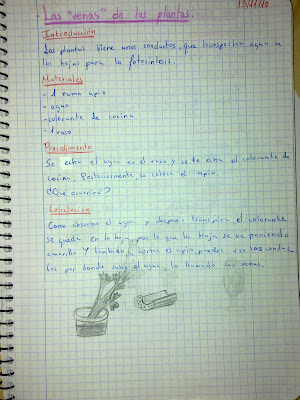 13/1/10
Las "venas" de las plantas.
Introducción
Las plantas tiene unos conductos, que transportan agua a
las hojas para la fotosíntesis.
Materiales
- 1 rama apio
- agua
- colorante de cocina
- 1 vaso
Procedimiento
Se echa el agua en el vaso y se le echa el colorante de
cocina, Posteriormente se coloca el apio.
¿Qué ocurrirá?
Conclusión
Como absorbe el agua y después transpira el colorante
se queda en la hoja, por lo que la hoja se va poniendo
amarilla y también, si cortas el apio, puedes ver los conduc
tos por donde sube el agua, lo llamado las venas.